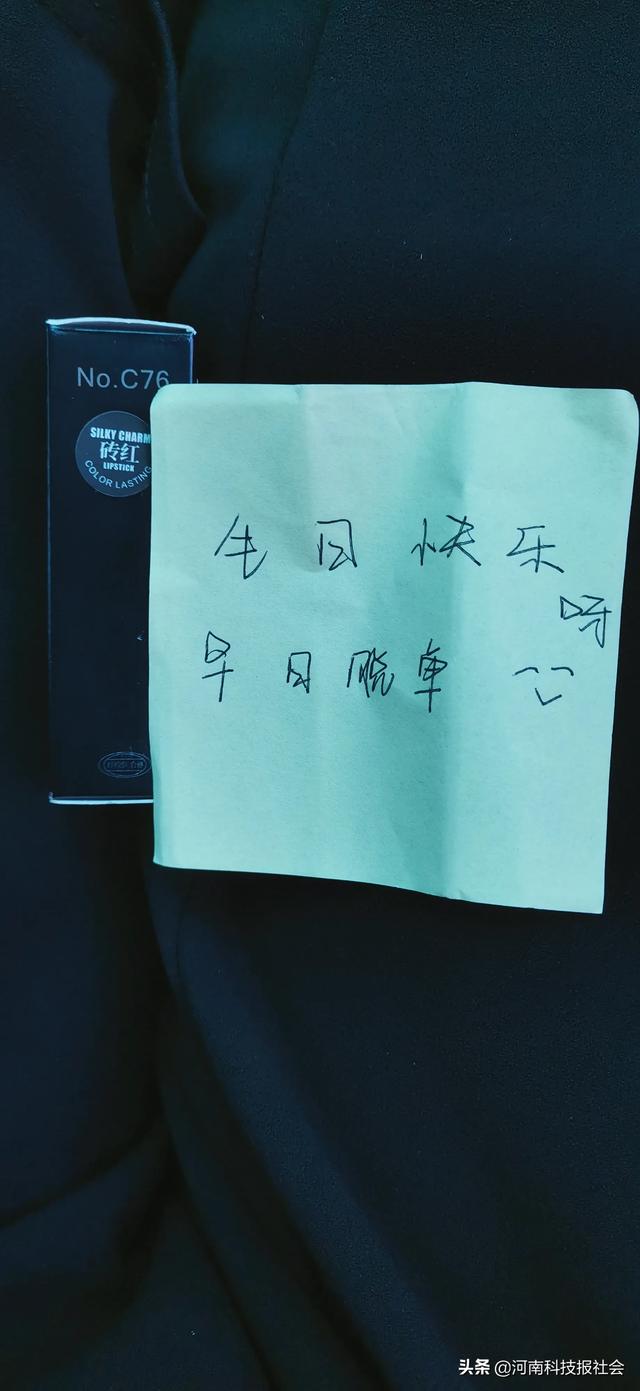 No.C76
SILKY CHARM
砖红
LIPSTICK
COLOR LASTING
生日快乐
呀
早日脱单
头条 @河南科技报社会